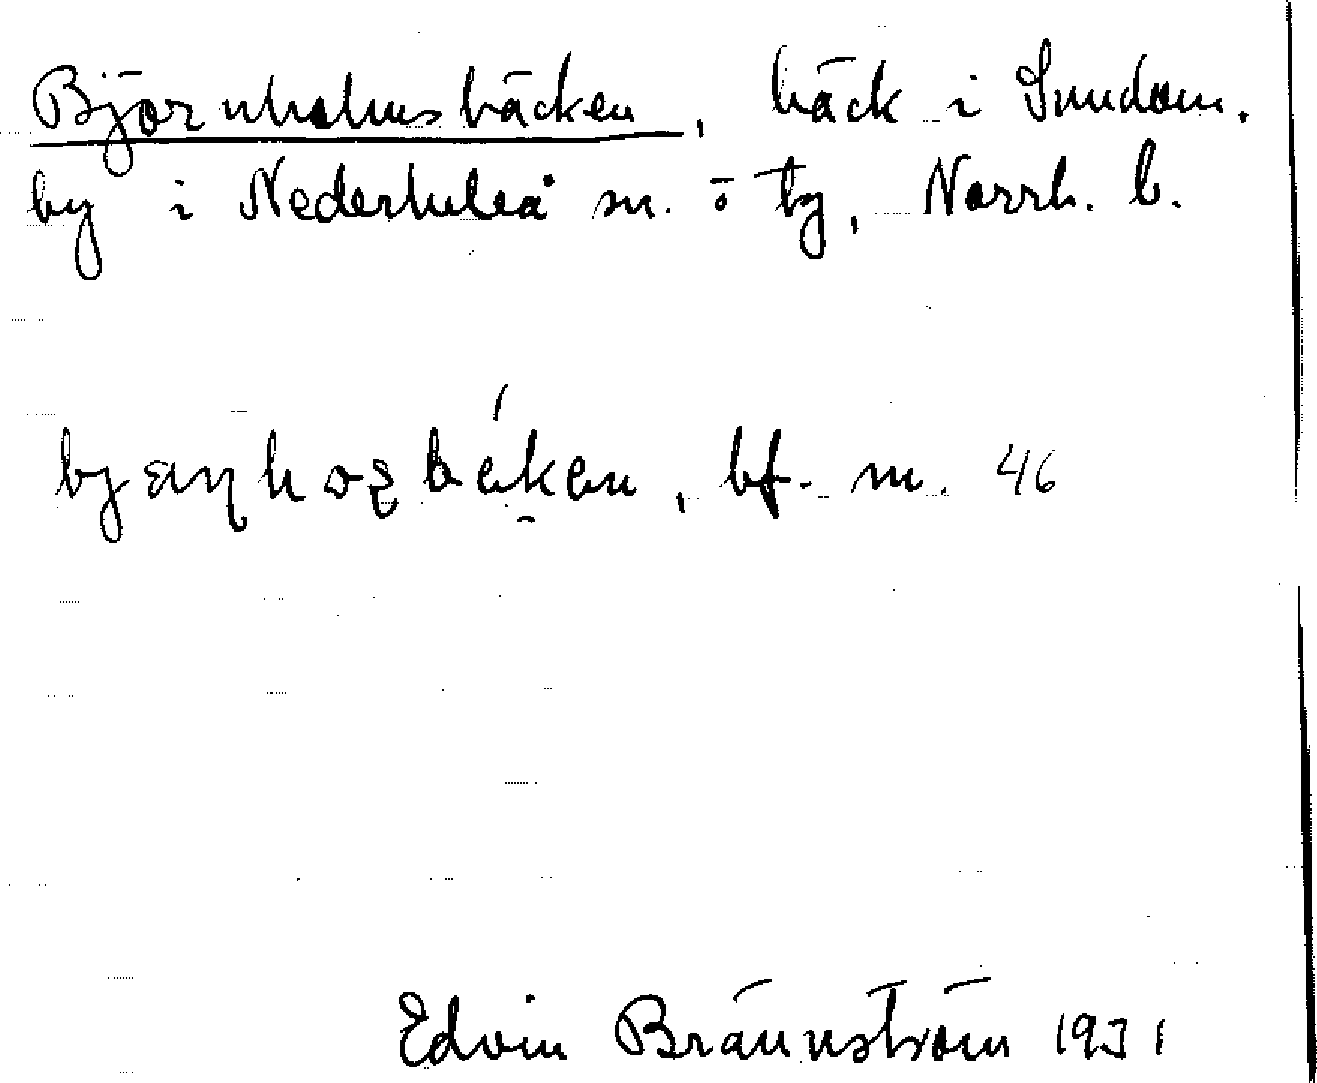 Björnholmsbäcken, bäck i Sundom.
by i Nederluleå sn. o tg, Norrb. l.
bf. m. 46
Edvin Brännström 1931